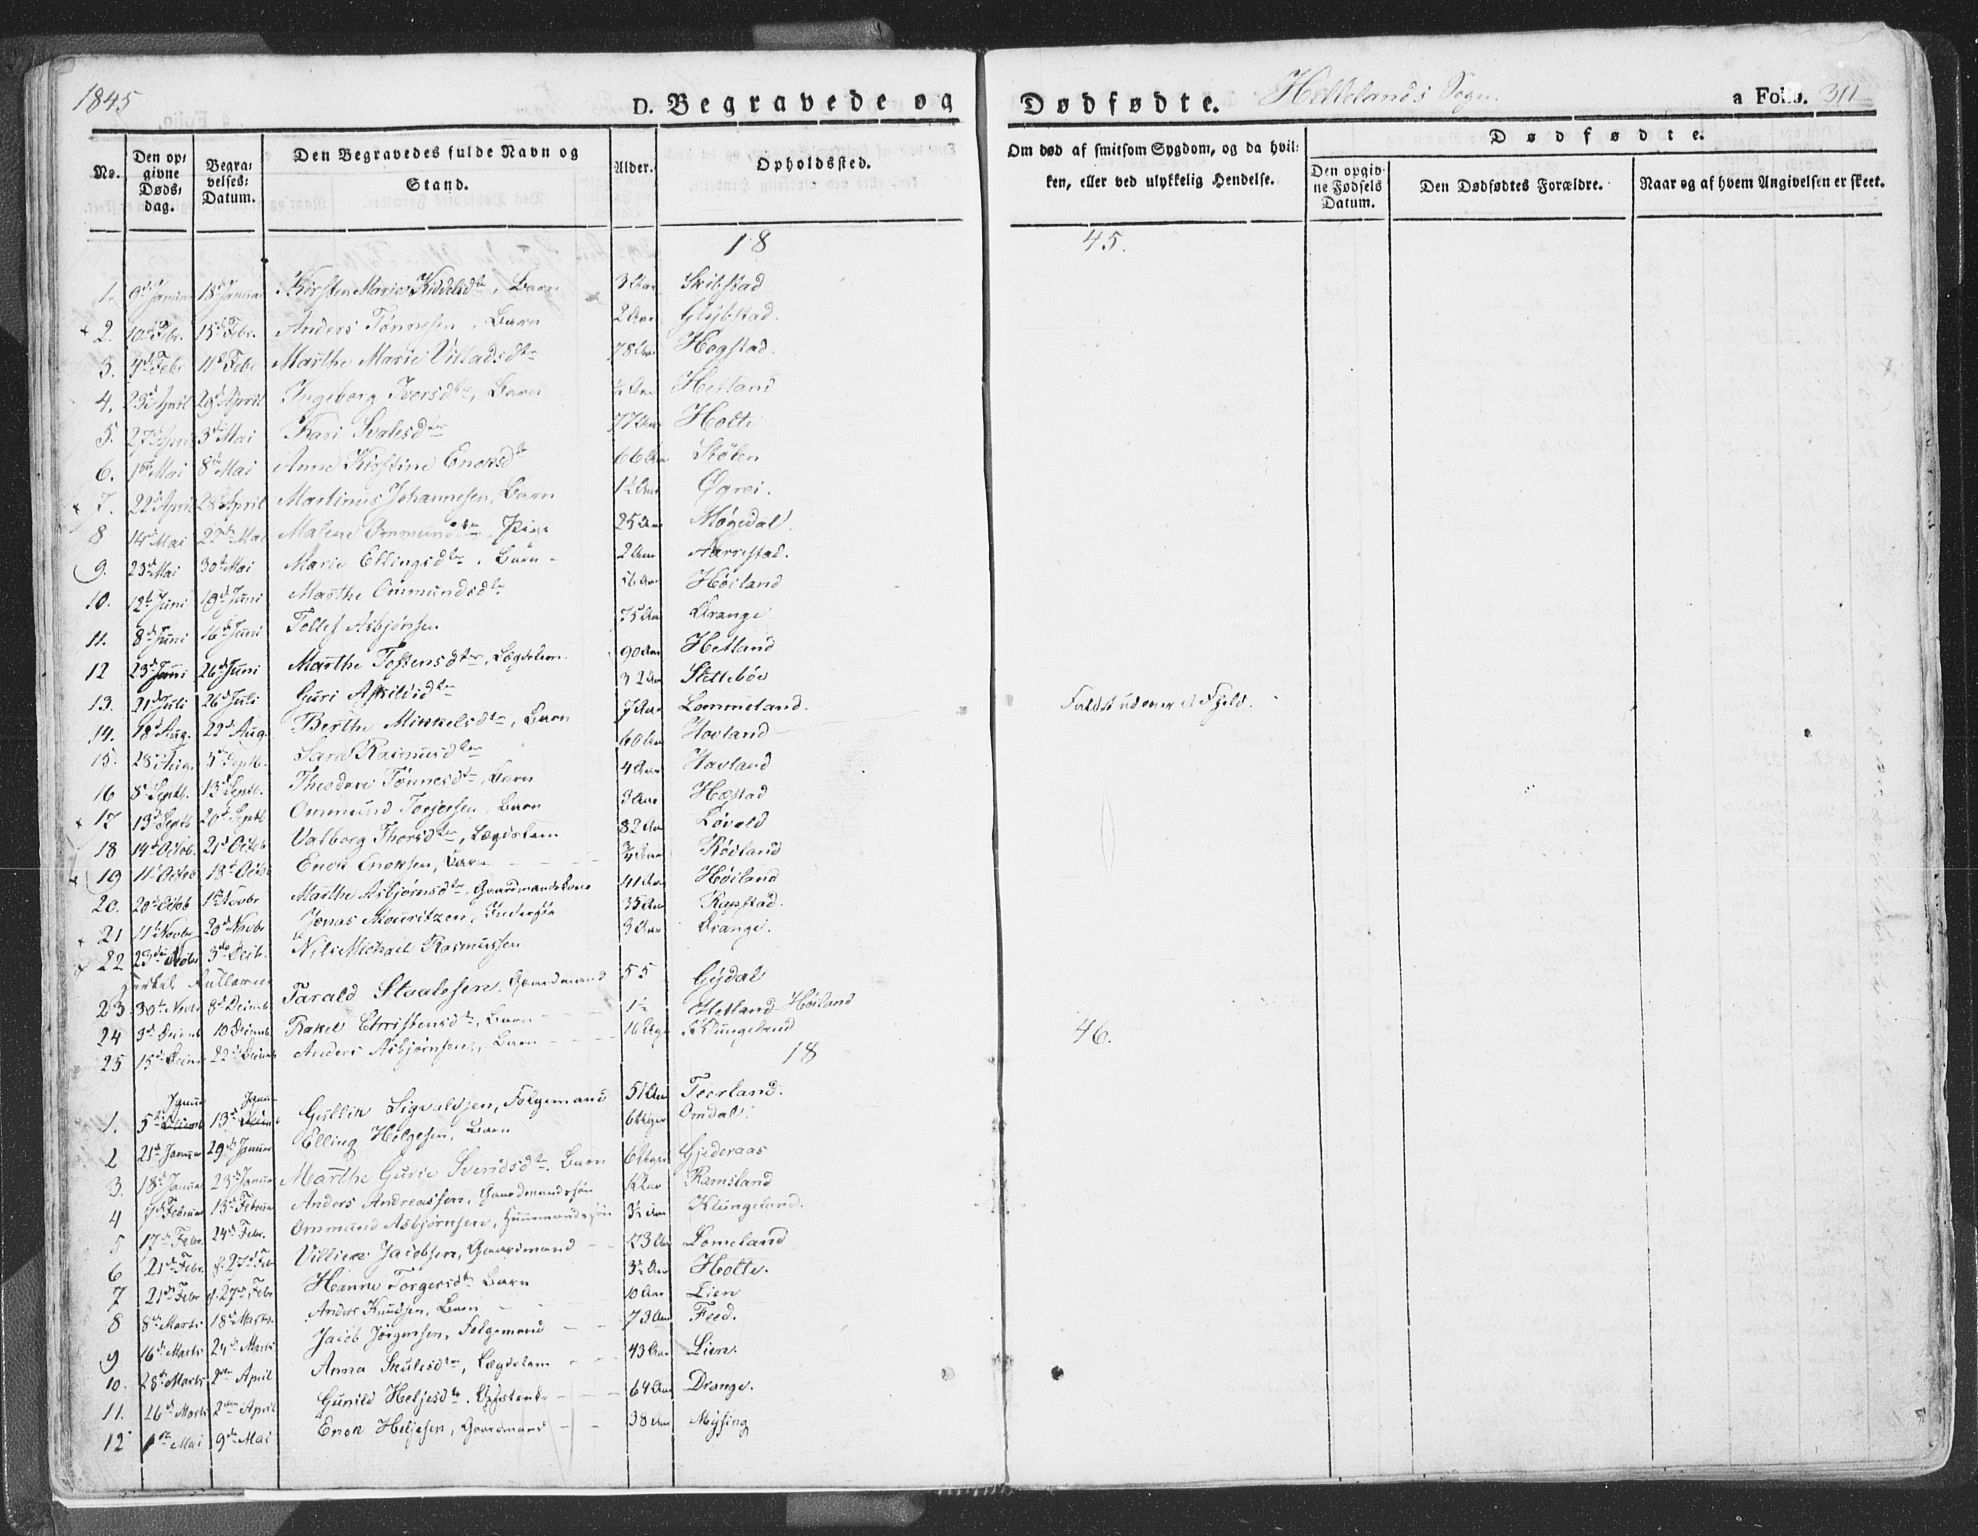 1845
D. Begravede og Dødfødte. Hellelands Sogn. a Folio. 311
No. Den opgivne Dødsdag. Begravelses-Datum. Den Begravedes fulde Navn og Stand. Alder. Opholdssted. Om død af smitsom Sygdom, og da hvilken, eller ved ulykkelig Hendelse.
Dødfødte.
Den opgivne Fødsels Datum. Den Dødfødtes Forældre. Naar og af hvem Angivelsen er skeet.
18 45.
1. 9d Januar 18d Januar Kirsten Marie Kiddelsdtr, Barn 3 Aar Skibstad
2. 10d Febr. 15d Febr. Anders Tønnesen, Barn 2 Aar Gljbstad.
3. 4d Febr 11d Febr Marthe Marie Villadsdtr 78 Aar Hogstad.
4. 23d April 29d April Ingeborg Iversdtr, Barn ½ Aar Hetland
5. 27d April 3d Mai Kari Svalesdtr 77 Aar Holte
6. 1st Mai 8d Mai Anne Kirstine Enoksdtr 66 Aar Støten
7. 22d April 28d April Martinus Johannesen, Barn 1½ Aar Øgrei.
8 14d Mai 22d Mai Malene Ommundsdtr, Pige 25 Aar Møgedal.
9. 23d Mai 30te Mai Marie Ellingsdtr, Barn 2 Aar Aarrestad.
10. 12te Juni 18d Juni Marthe Ommundsdtr 56 Aar Høiland
11. 8d Juni 16d Juni Tollef Asbjørnsen 75 Aar Drange
12 23d Juni 26d Juni Marthe Tostensdtr, Lægdslem. 90 Aar Hetland
13. 21d Juli 26d Juli Guri Aslildsdtr 32 Aar Slettebøe
14. 18d Aug. 22d Aug. Berthe Mikkelsdtr, Barn 7 Aar Lommeland. Faldt ud over et Fjeld.
15. 28d Aug. 5d Septb. Sara Rasmusdtr 60 Aar Hovland
16 8d Septb. 13d Septb. Theodore Tønnesdtr, Barn 4 Aar Havland
17 13d Septb 20d Septb Ommund Torjersen, Barn 3 Aar Hæstad
18 14d Octob. 21d Octob Valborg Thorsdtr, Lægdslem 82 Aar Løvold
19 11te Octob 18d Octob Enok Enoksen, Barn ¾ Aar Rødland
20. 20d Octob 1ste Novbr Marthe Asbjørnsdtr, Gaardmandskone 41 Aar Høiland
21 11te Novbr 20d Novbr Jonas Mouritzen, Inderst 35 Aar Kypstad.
22 23d Novbr 3d Decb. Nils Michael Rasmussen 3 Aar Drange.
23 30te Novbr 8d Decemb Tarald Staalesen, Gaardmand 55 Gysdal
24 3d Decemb 10 Decemb. Rakel Christensdtr, Barn 1½ Hetland Høiland
25 15d Decemb 22d Decemb Anders Asbjørnsen, Barn 16 Uger Klungeland
18 46.
1. 5d Januar 13d Januar Gullik Sigvaldsen, Folgemand 51 Aar Teorland.
2 21d Januar 29d Januar Elling Helgesen, Barn 6 Uger Omdal.
3. 18d Januar 23d Januar Marthe Gurie Svendsdtr. Barn 6 Uger Gjederaas
4 7d Februar 13d Februar Anders Andreassen, Gaardmandssøn Aar Ramsland
5 17d Febr. 24d Febr. Ommund Asbjørnsen, Huusmandssøn 3½ Aar Klungeland.
6 21d Febr. 27d Febr Villiem Jacobsen, Gaardmand 73 Aar Lomeland
7 21d Febr 27d Febr Hanne Torgersdtr Barn 3½ Aar Holte.
8 8d Marts 18d Marts. Anders Knudsen, Barn 10 Aar Lien
9 16d Marts 24d Marts Jacob Jørgensen, Folgemand 73 Aar Feed.
10. 28d Marts 2den April Anna Skulesdtr, Lægdslem 43 Aar Lien.
11. 26d Marts 2den April Gunild Heljesdtr. 64 Aar Drange.
12 1ste Mai 9de Mai Enok Heljesen, Gaardmand 38 Aar Mysing